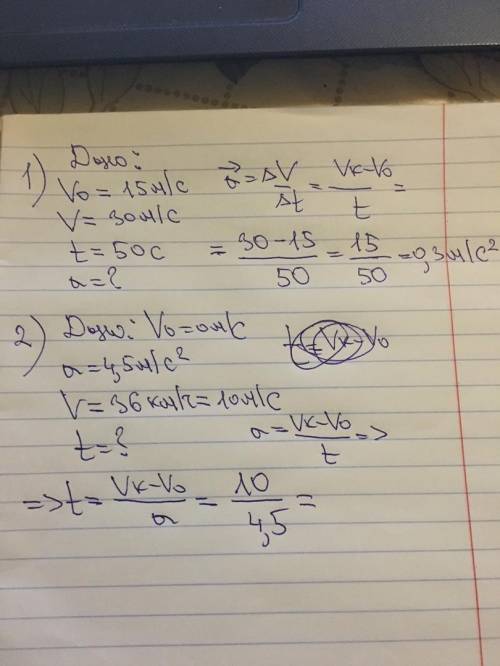 1) Дано:
V₀ = 15 м/с
V = 30 м/с
t = 50 с
a = ?
a⃗ = ΔV/Δt = (Vк-V₀)/t =
= (30-15)/50 = 15/50 = 0,3 м/с²
2) Дано: V₀ = 0 м/с
a = 4,5 м/с²
V = 36 км/ч = 10 м/с
t = ?
a = (Vк-V₀)/t =>
=> t = (Vк-V₀)/a = 10/4,5 =